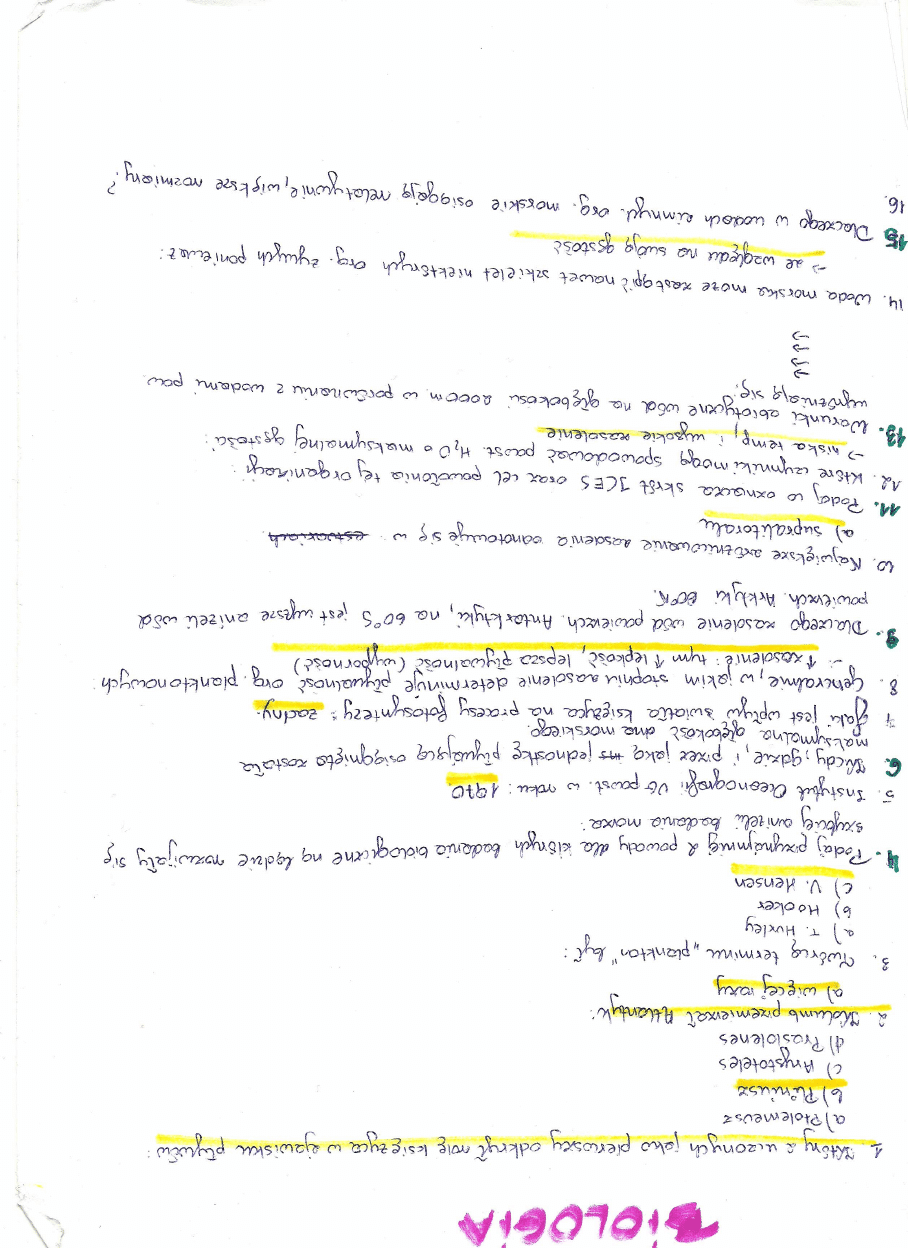 BIOLOGIA
1. Który z uczonych jako pierwszy odkrył rolę księżyca w zjawisku pływów:
a) Ptolemeusz
b) Pliniusz
c) Arystoteles
d)
2. Kolumb przemierzał Atlantyk:
a) więcej razy
3. Twórcą terminu „plankton" był:
a) T. Huxley
b) Hooker
c) V. Hensen
4. Podaj przynajmniej 2 powody dla których badania biologiczne na lądzie rozwijały się
szybciej aniżeli badania morza:
5. Instytut Oceanografii UG powst. w roku: 1970
6. Kiedy, gdzie, i przez jaką jednostkę pływającą osiągnięta została
maksymalna głębokość dna morskiego.
7 Jaki jest wpływ światła księżyca na procesy fotosyntezy: żadny.
8. Generalnie, w jakim stopniu zasolenie determinuje pływalność org. planktonowych:
↑ zasolenie: tym ↑ lepkość, lepsza pływalność (wyporność)
9. Dlaczego zasolenie powierzch. wód Antarktyki, na 60°S jest wyższe aniżeli wód
powierzch. Arktyki 60°N.
10. Największe zróżnicowanie zasolenia odnotowuje się w estuariach.
a) supralitoralu
11. Podaj co oznacza skrót ICES oraz cel powołania tej organizacji:
12. Które czynniki mogą spowodować powst. H2O o maksymalnej gęstości:
→ niska temp, i wysokie zasolenie
13. Warunki abiotyczne wód na głębokości 2000m w porównaniu z wodami pow.
wyróżniają się:
→
→
→
→
14. Woda morska może zastąpić nawet szkielet niektórych org. żywych ponieważ:
→ ze względu na swoją gęstość
15 Dlaczego w wodach zimnych org. morskie osiągają relatywnie, większe rozmiary?
16.